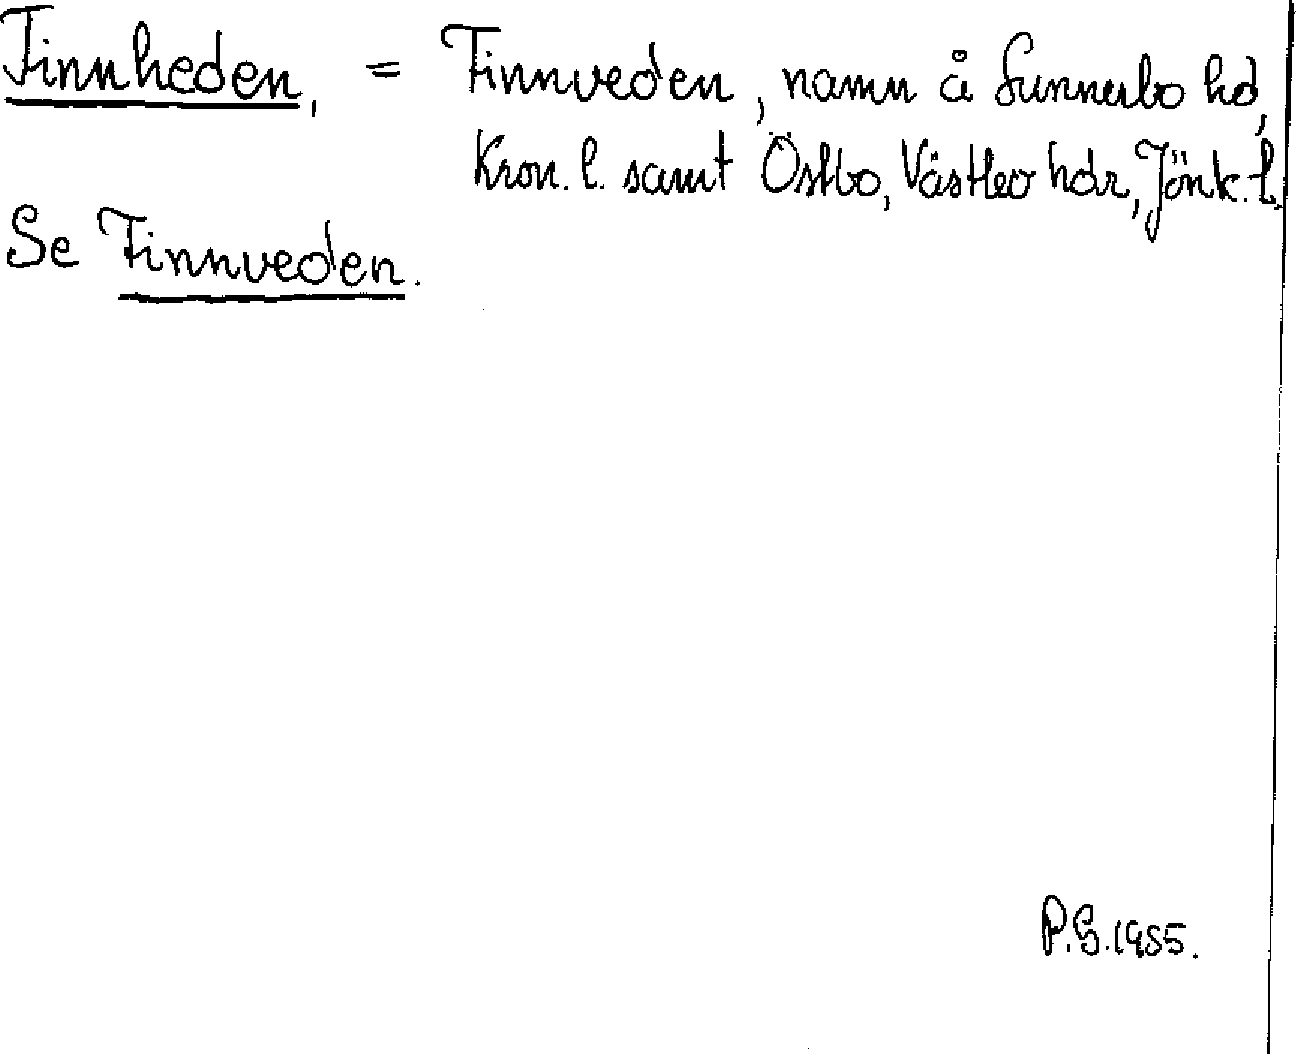 Finnheden, = Finnveden, namn å Sunnerbo hd,
Kron. l. samt Östbo, Västbo hdr, Jönk. l.
Se Finnveden.
P.G. 1955.